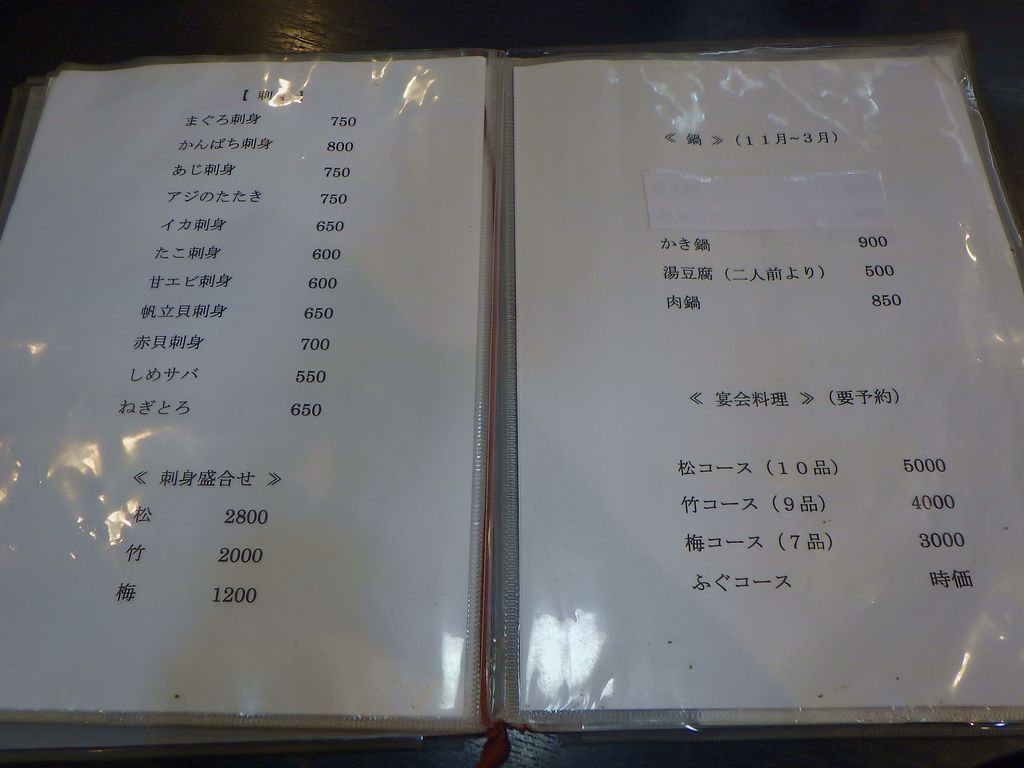 【 刺身 】
まぐろ刺身 750
かんぱち刺身 800
あじ刺身 750
アジのたたき 750
イカ刺身 650
たこ刺身 600
甘エビ刺身 600
帆立貝刺身 650
赤貝刺身 700
しめサバ 550
ねぎとろ 650
≪ 刺身盛合せ ≫
松 2800
竹 2000
梅 1200
≪ 鍋 ≫（１１月~３月）
かき鍋 900
湯豆腐（二人前より） 500
肉鍋 850
≪ 宴会料理 ≫（要予約）
松コース（１０品） 5000
竹コース（９品） 4000
梅コース（７品） 3000
ふぐコース 時価